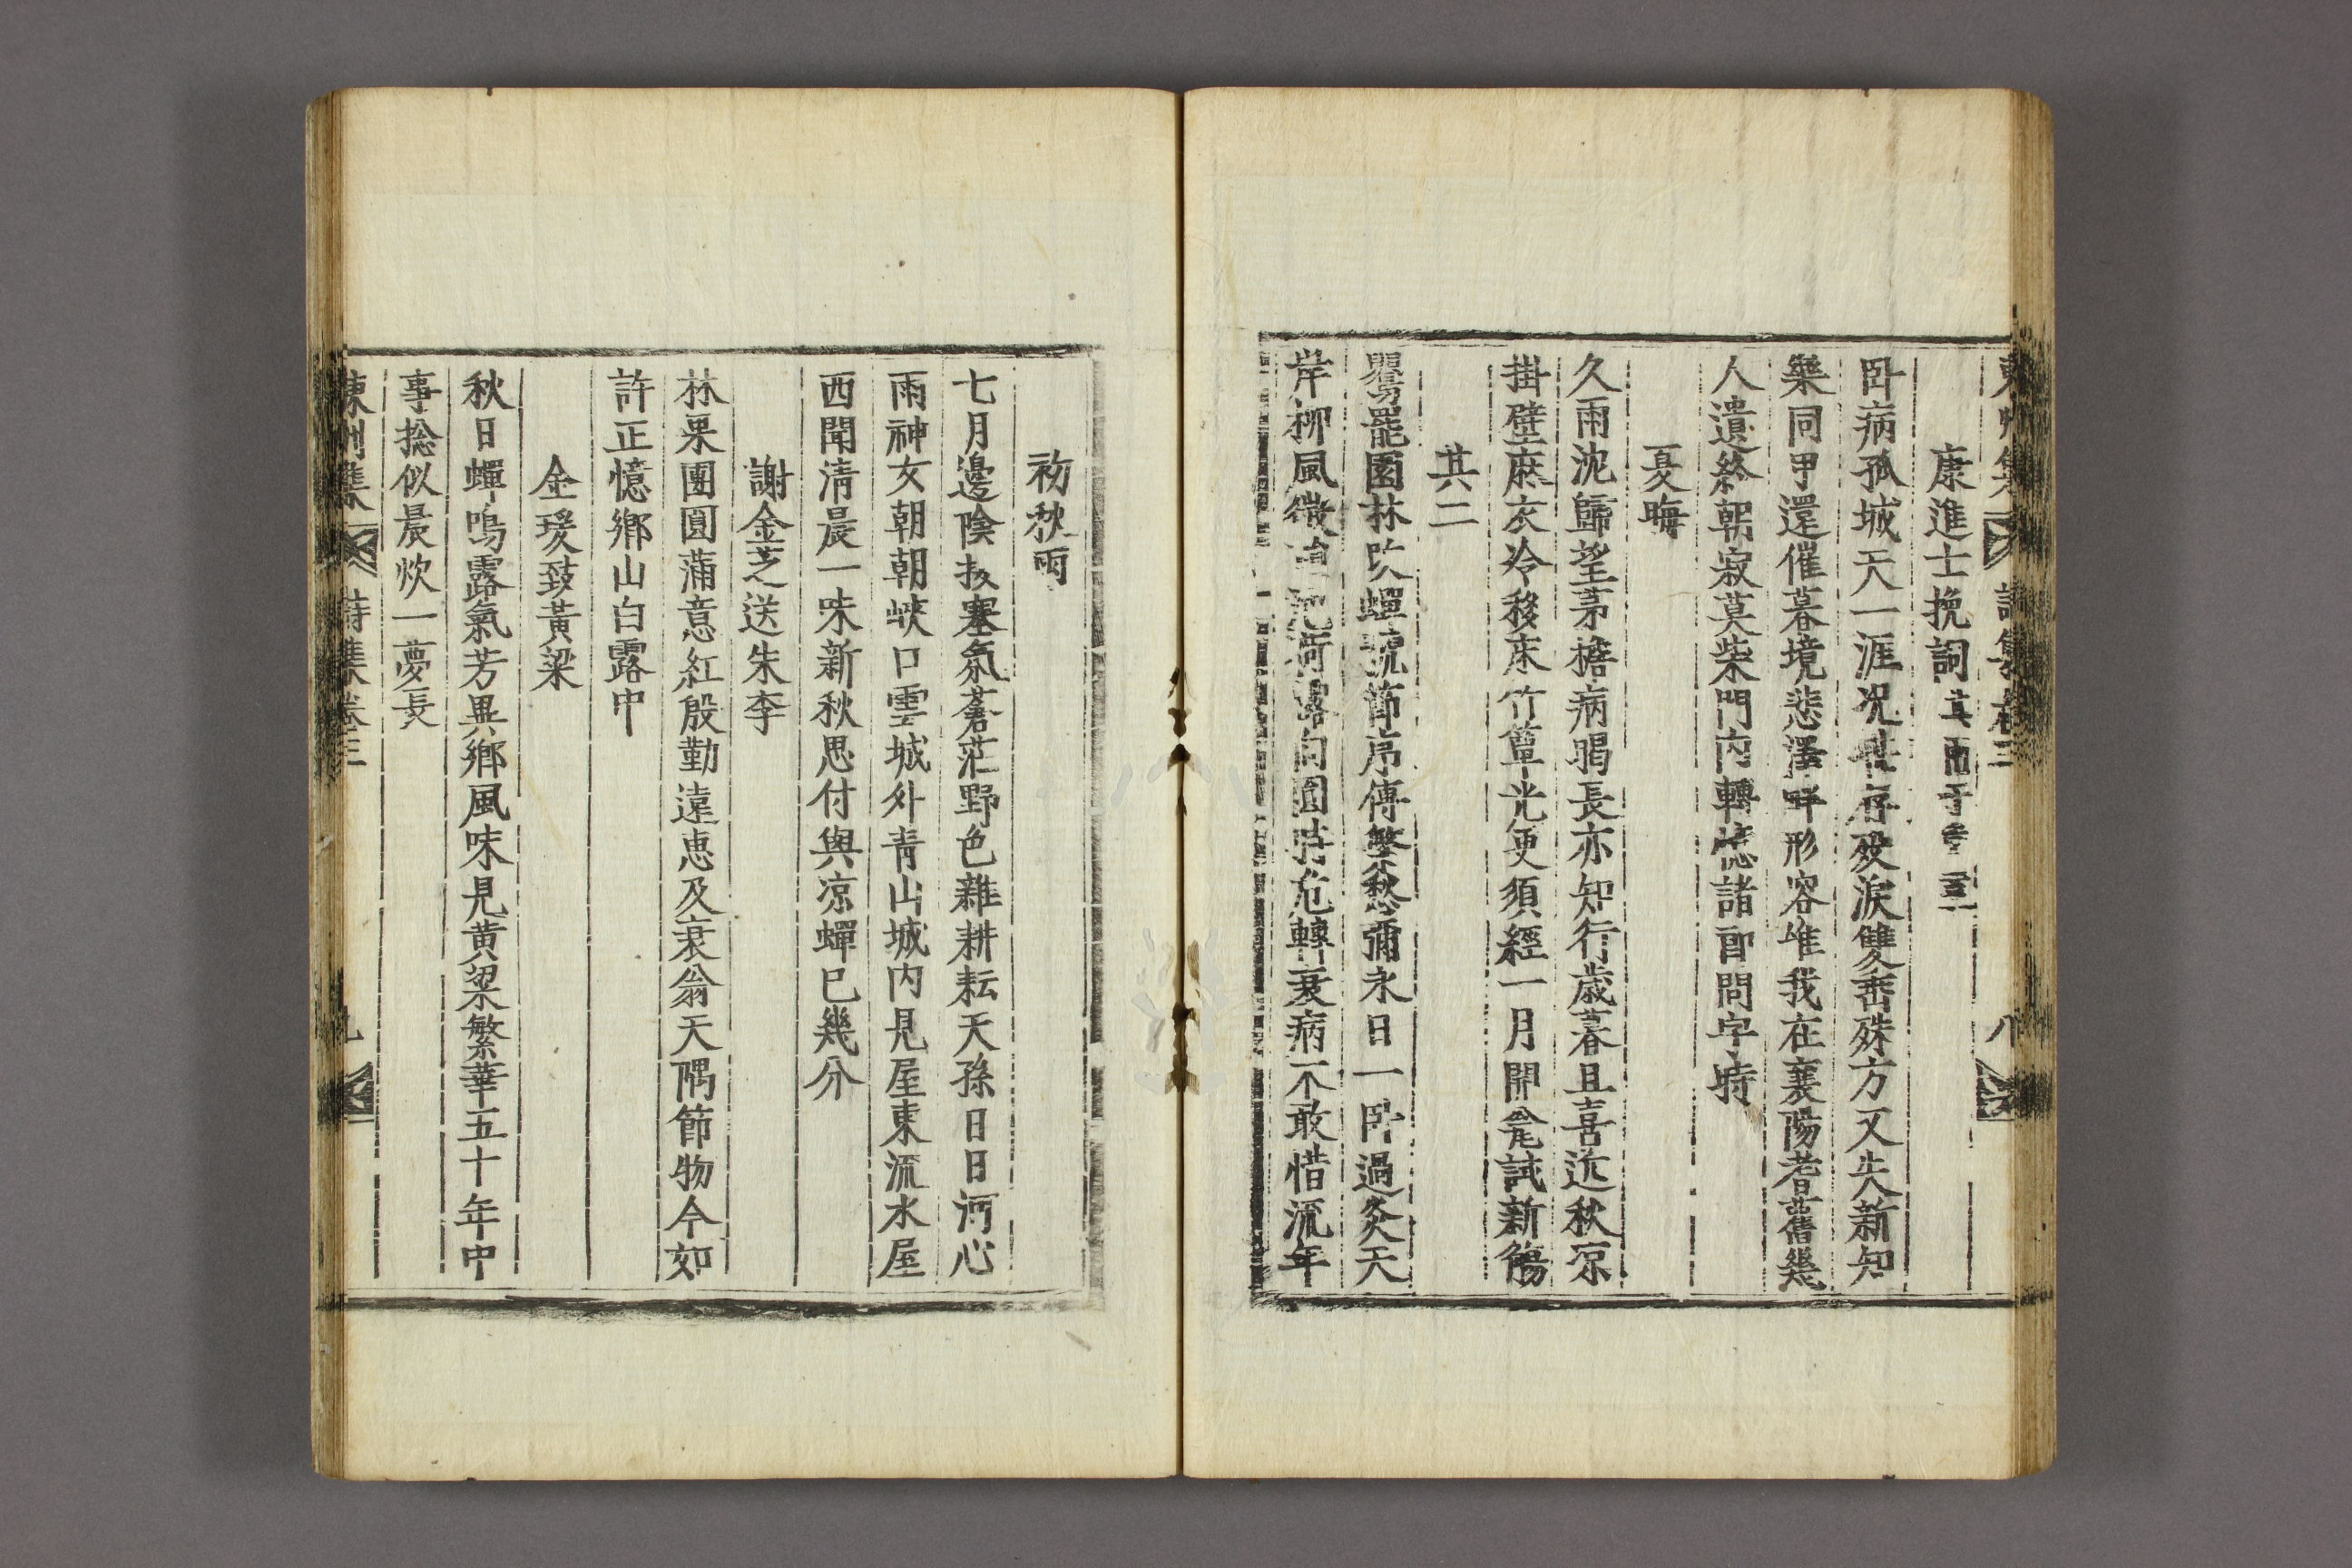 康進士挽詞
卧病孤城天一涯况存殁淚雙垂殊方又失新知
樂同甲還催暮境悲澤畔形容唯我在襄陽耆舊幾
人遺終朝寂莫柴門內轉憶諸郎問字時
夏晦
久雨沈歸望茅檐病暍長亦知行歲暮且喜近秋凉
掛壁麻衣冷移床竹簟光便須經一月開瓮試新觴
其二
罷園林改蟬號節序傳繁愁彌永日一卧過炎天
岸柳風微河露向圓時危轉衰病不敢惜流年
初秋雨
七月邊陰投塞氛蒼茫野色雜耕耘天孫日日河心
雨神女朝朝峽口雲城外靑山城內見屋東流水屋
西聞淸晨一味新秋思付與凉蟬已幾分
謝金芝送朱李
林果團圓蒲意紅殷勤遠惠及衰翁天隅節物今如
許正憶鄕山白露中
金瑗致黃梁
秋日蟬鳴露氣芳異鄕風味見黃梁繁華五十年中
事捴似晨炊一夢長
東洲集 詩集卷三 九